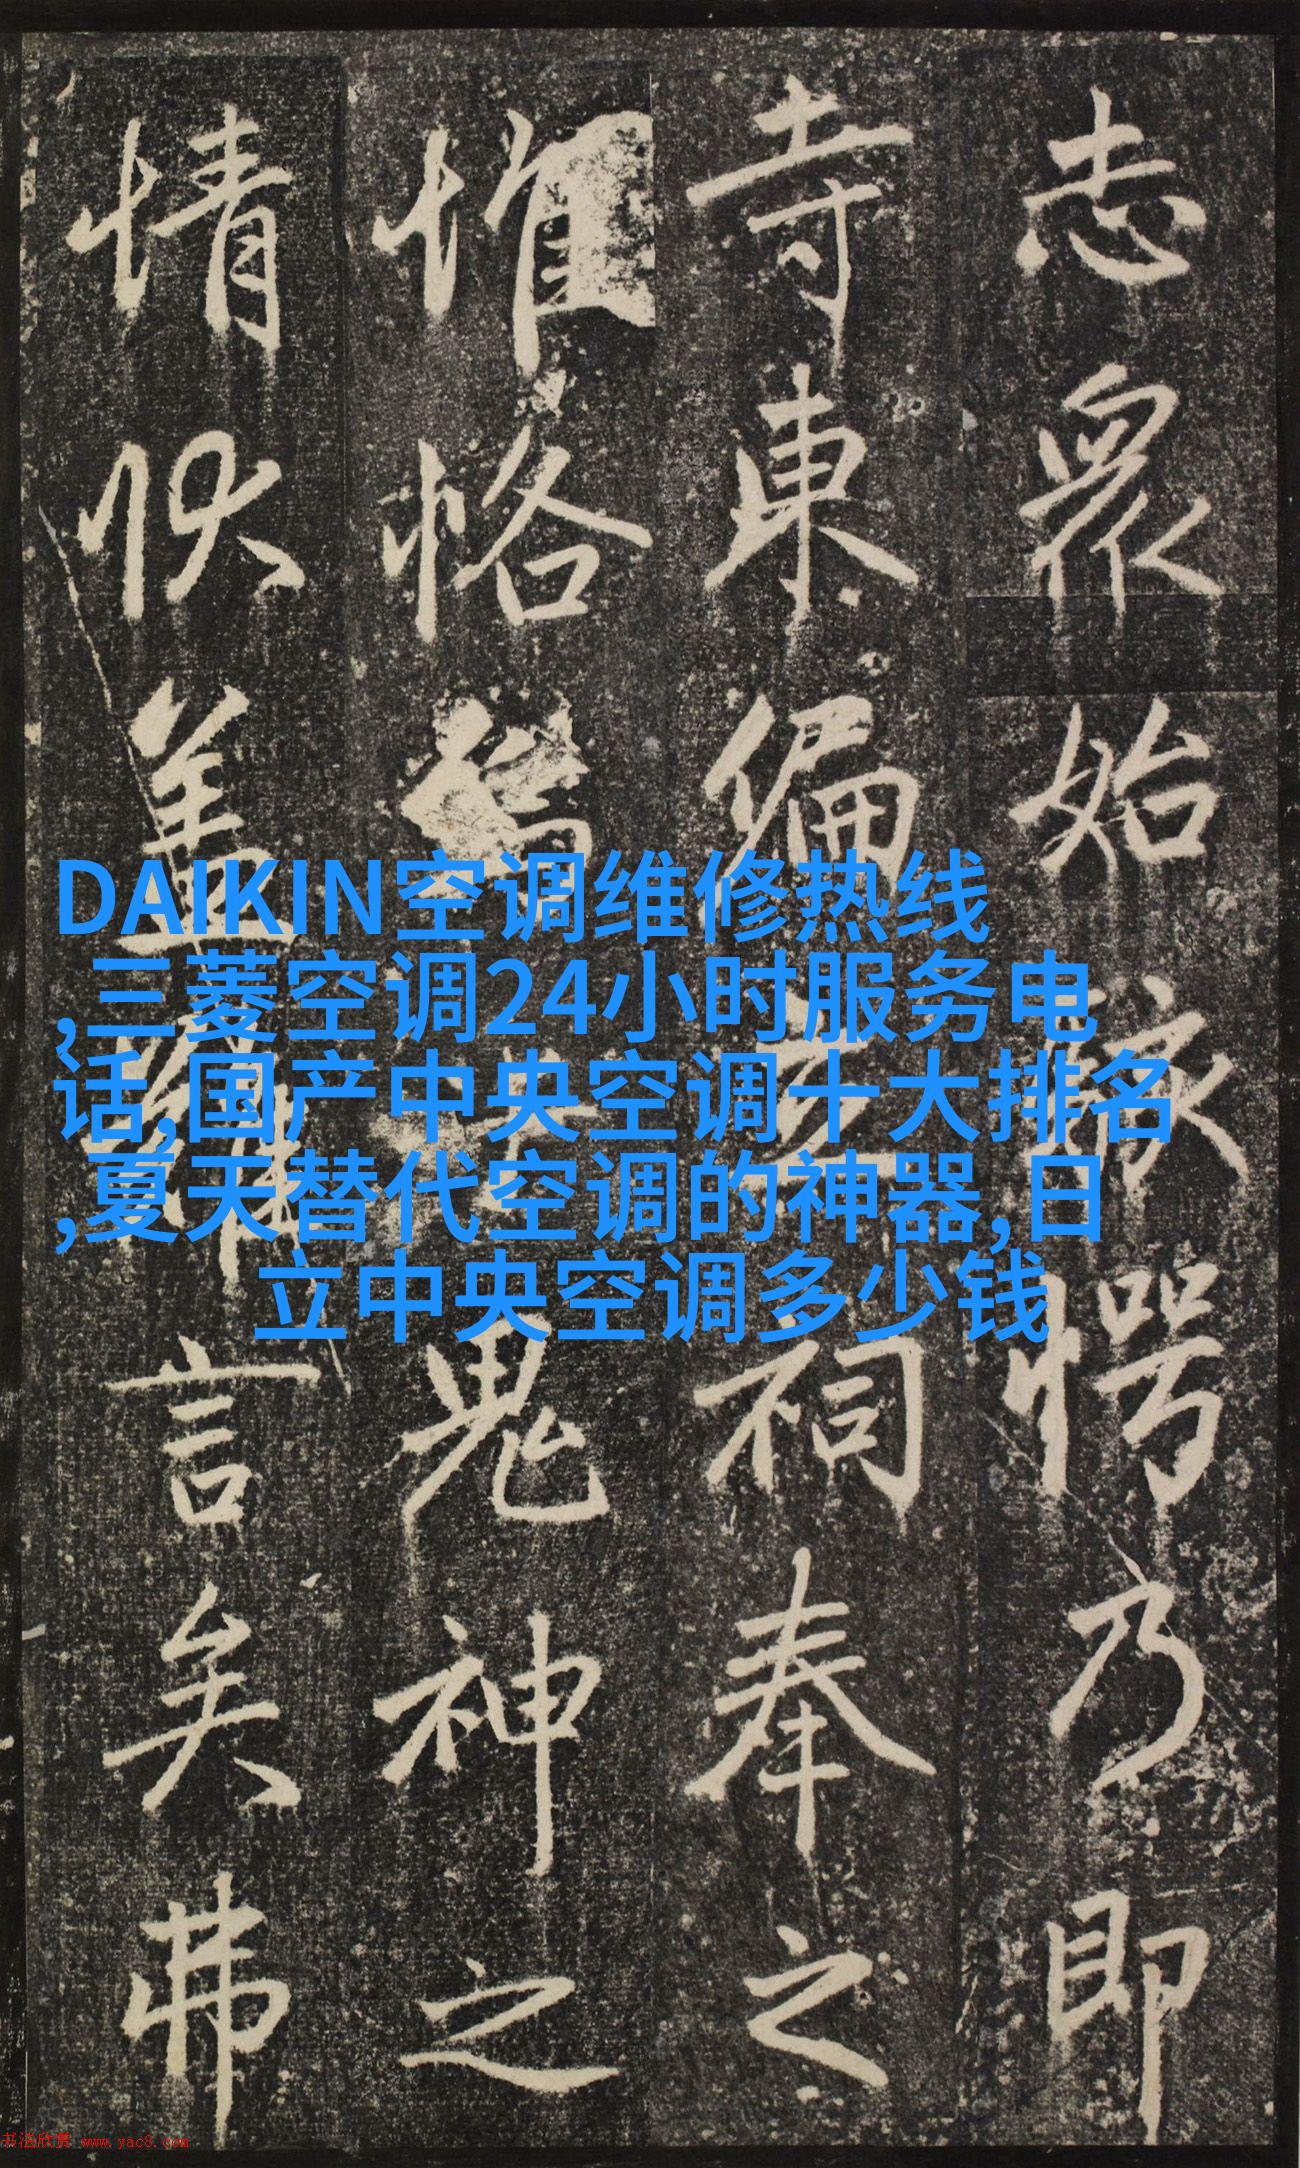 志眾始愕乃即
寺東偏立祠奉之
惟恪鬼神之
情状盖言矣弗
DAIKIN空调维修热线
,三菱空调24小时服务电
话,国产中央空调十大排名
,夏天替代空调的神器,日
立中央空调多少钱
书法欣赏 www.yac8.com